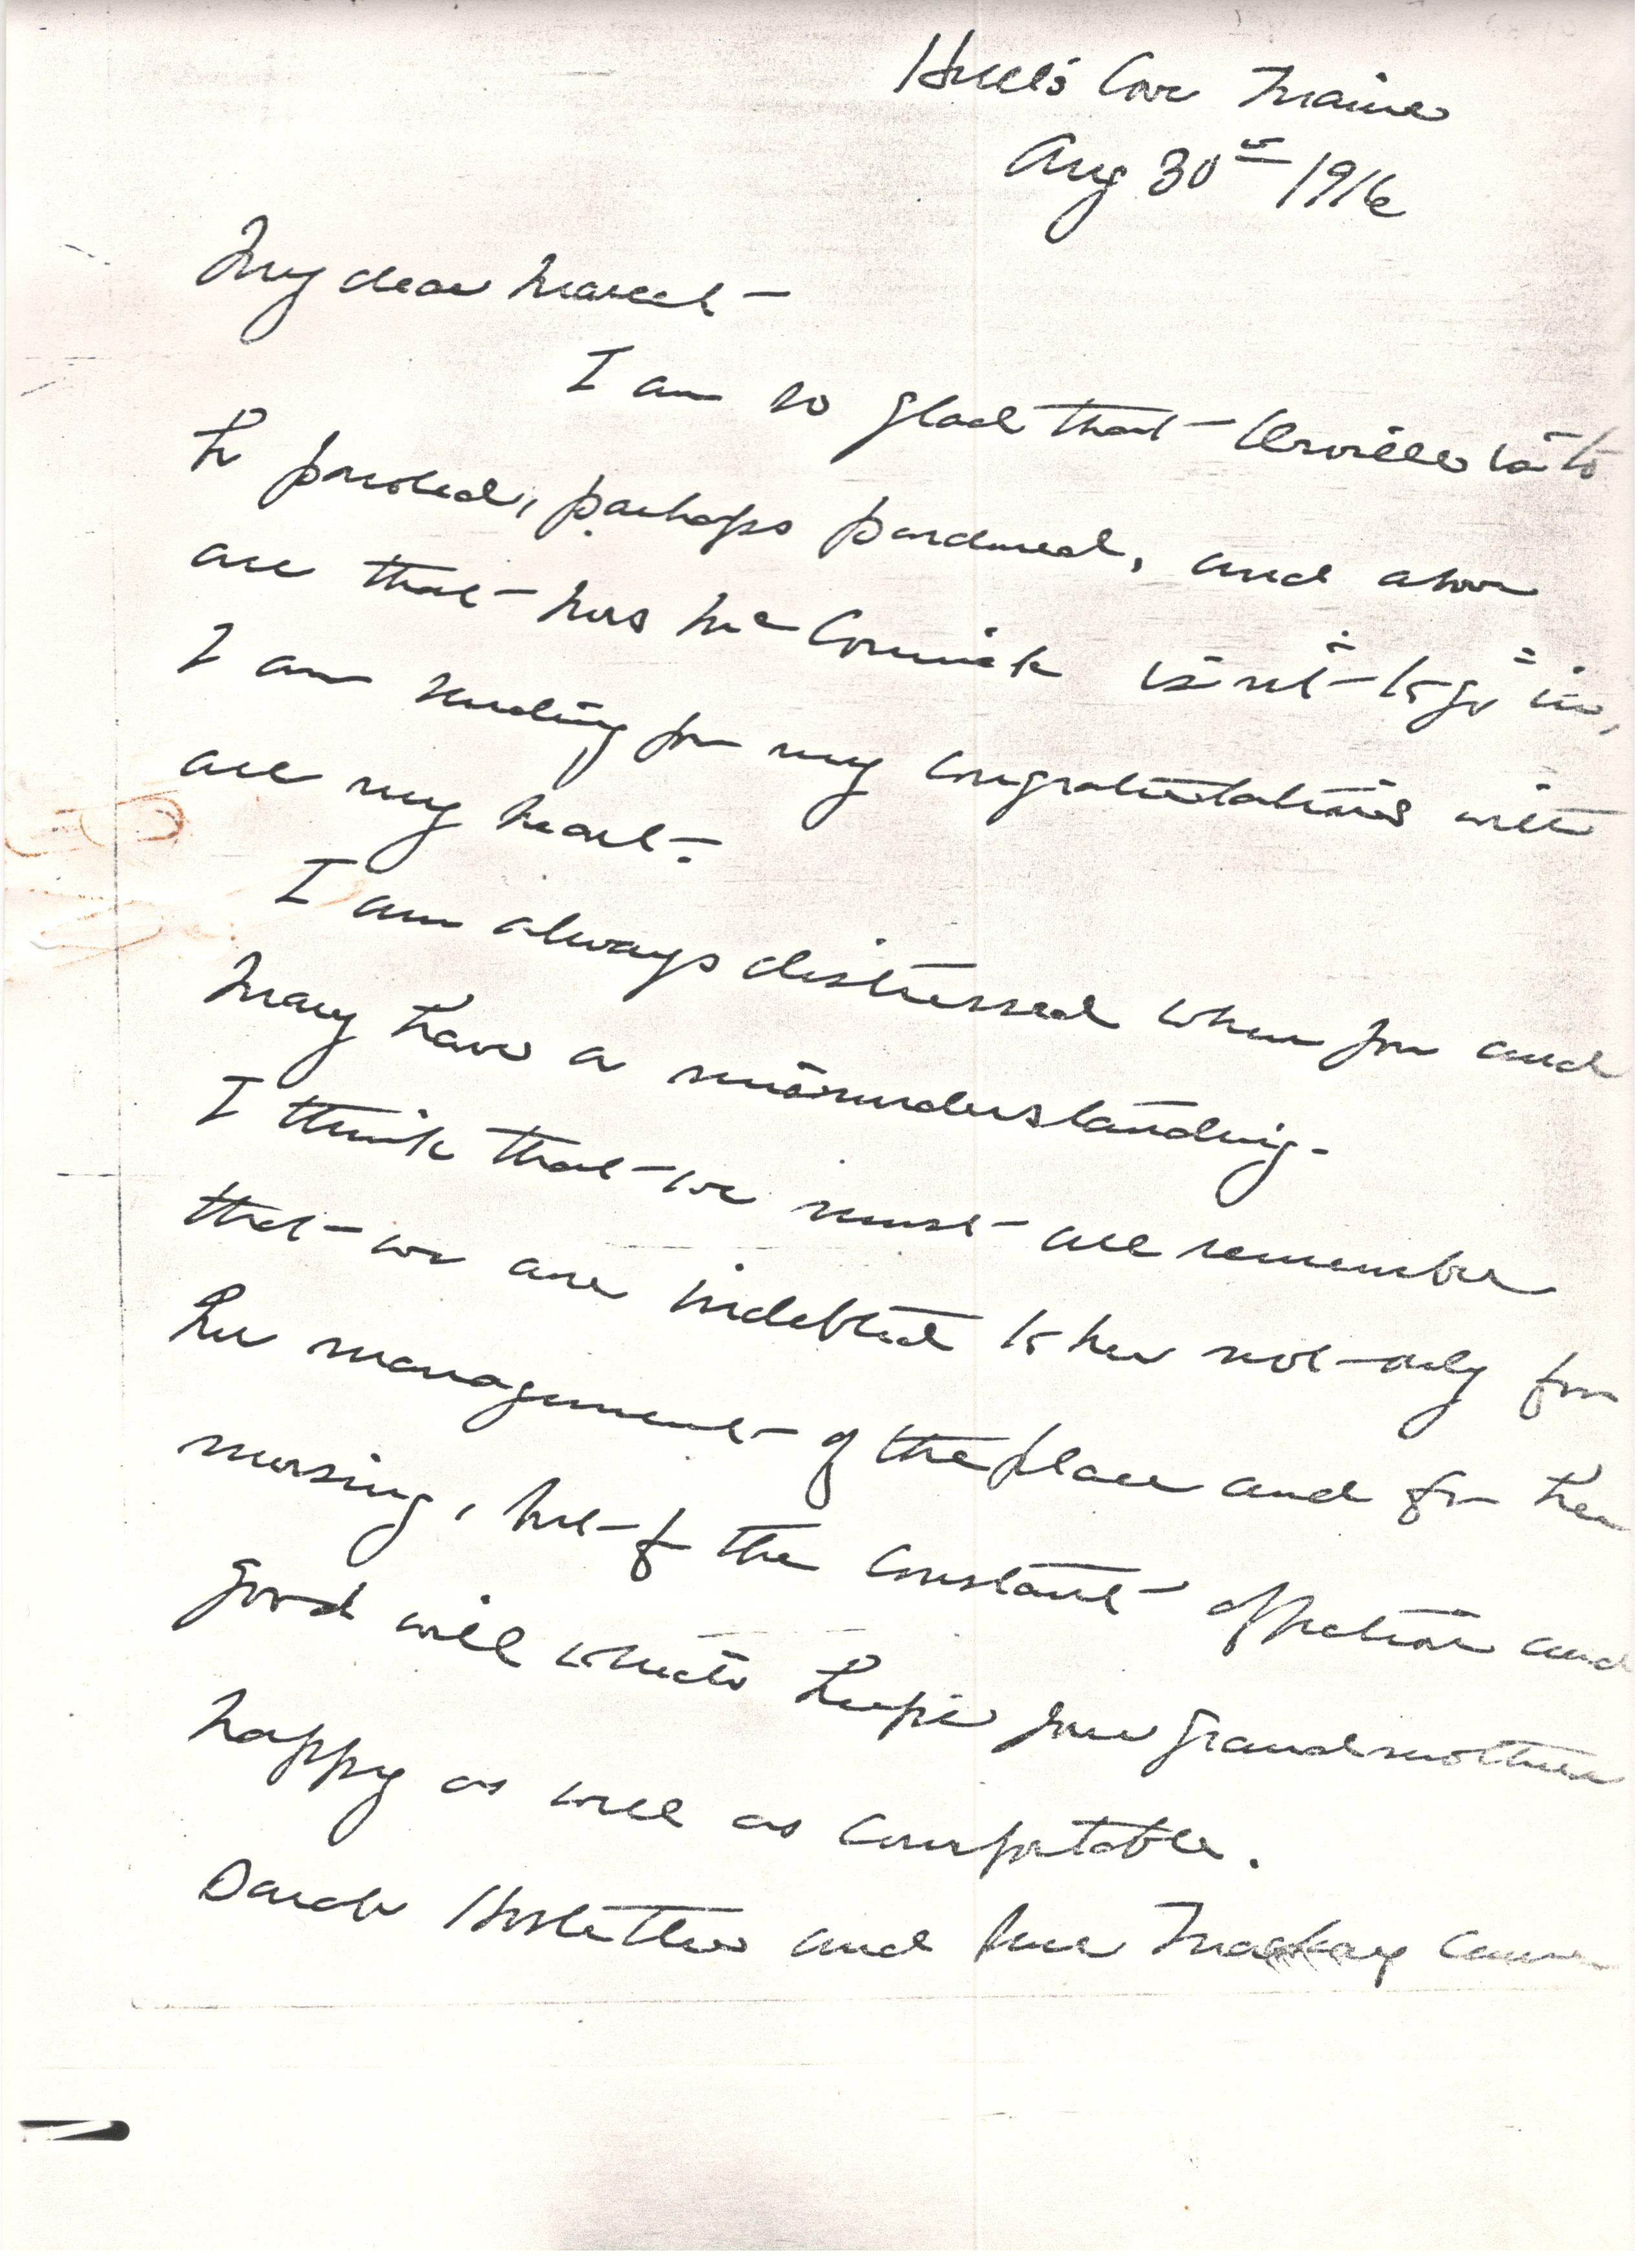 Hull's Cove Maine
Aug 30th 1916
My dear Marcet -
I am so glad that Orville is to
be paroled, perhaps pardoned, and above
all that Mrs McCormick isn't to go in,
I am sending you my congratulations with
all my heart -
I am always distressed when you and
Mary have a misunderstanding -
I think that we must all remember
that we are indebted to her not only for
her management of the place and for her
nursing, but for the constant affection and
good will which keeps your grandmother
happy as well as comfortable.
Sarah Hostetter and her Mackay came